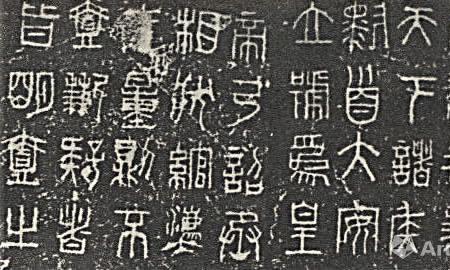 天下諸侯
黔首大安
立號為皇
帝乃詔丞
相狀綰灋
度量則不
壹歉疑者
皆明壹之